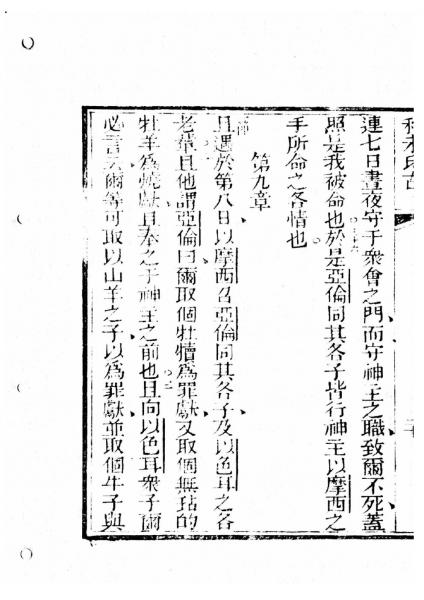 連七日晝夜守于衆會之門而守神主之職致爾不死蓋
照是我被命也於是亞倫同其各子皆行神主以摩西之
手所命之各情也
第九章
且遇於第八日以摩西召亞倫同其各子及以色耳之各
老輩且他謂亞倫曰爾取個牡犢爲罪獻又取個無玷的
牡羊爲燒獻且奉之于神主之前也且向以色耳衆子爾
必言云爾等可取以山羊之子以爲罪獻並取個牛子與